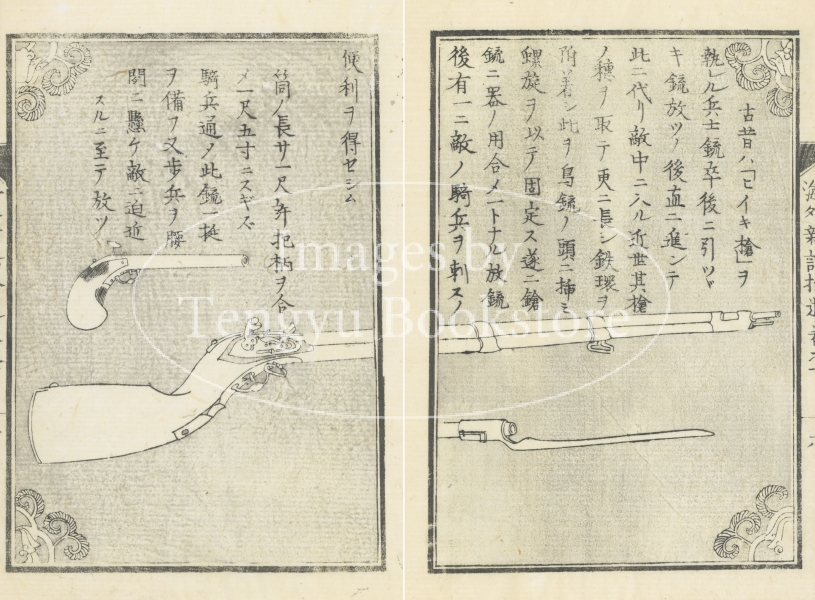 古昔ハ「ピイキ槍」ヲ
執レル兵士銃卒後ニ引ツヾ
キ銃放ツノ後直ニ進ンテ
此ニ代リ敵中ニ入ル近世其槍
ノ穂ヲ取テ更ニ長シ鉄環ヲ
附着シ此ヲ鳥銃ノ頭ニ挿ミ
螺旋ヲ以テ固定ス遂ニ鎗
銃ニ器ノ用合メ一トナル放銃
後有一ニ敵ノ騎兵ヲ刺スノ
便利ヲ得セシム
筒ノ長サ一尺弁把柄ヲ合
メ一尺五寸ニスギズ
騎兵通ノ此銃一挺
ヲ備フ又歩兵ヲ腰
間ニ懸ケ敵ニ迫近
スルニ至テ放ツ
海外新話拾遺巻之
Images by
Tengyu Bookstore